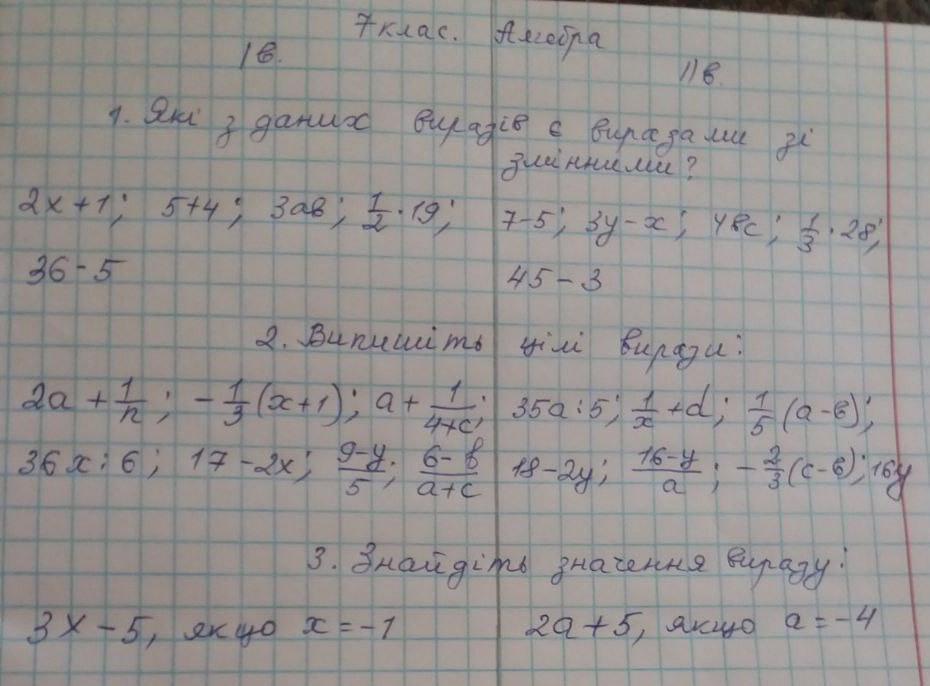 7 клас. Алгебра
I в.
II в.
1. Які з даних виразів є виразами зі
змінними?
2x+1; 5+4; 3ав; 1/2 · 19;
36-5
7-5; 3y-x; 4вс; 1/3 · 28;
45-3
2. Випишіть цілі вирази:
2a + 1/n; -1/3(x+1); a + 1/(4+c);
36x:6; 17-2x; (9-y)/5; (6-в)/(a+c)
35a:5; 1/x + d; 1/5(a-в);
18-2y; (16-y)/a; -2/3(c-в); 16y
3. Знайдіть значення виразу:
3x-5, якщо x=-1
2a+5, якщо a=-4